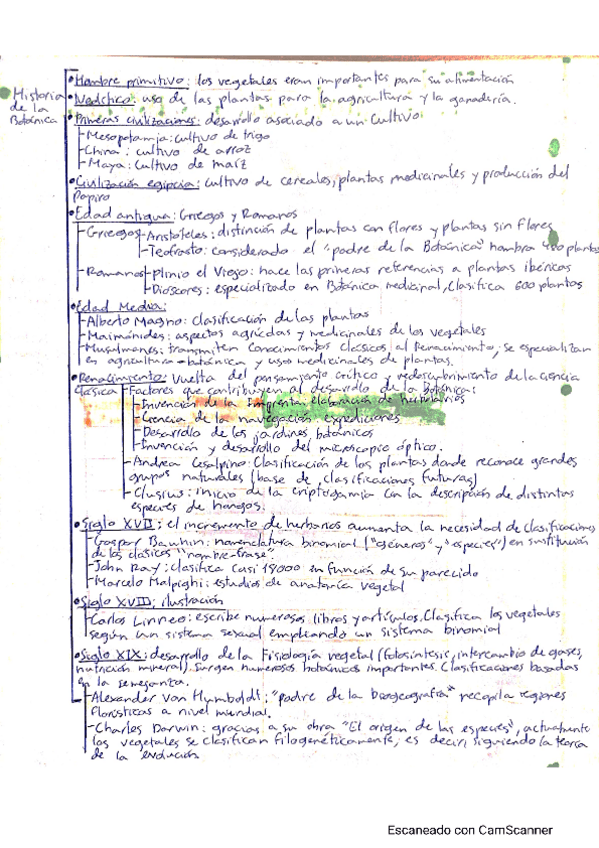 Historia de la Botánica
•Hombre primitivo: los vegetales eran importantes para su alimentación
•Neolítico: uso de las plantas para la agricultura y la ganadería.
•Primeras civilizaciones: desarrollo asociado a un cultivo
-Mesopotamia: cultivo de trigo
-China: cultivo de arroz
-Maya: cultivo de maíz
•Civilización egipcia: cultivo de cereales, plantas medicinales y producción del
Papiro
•Edad antigua: Griegos y Romanos
-Griegos-Aristóteles: distinción de plantas con flores y plantas sin flores
-Teofrasto: considerado el "padre de la Botánica" nombra plantas
-Romanos-Plinio el Viejo: hace las primeras referencias a plantas ibéricas
-Dioscores: especializado en Botánica medicinal, clasifica 600 plantas
•Edad Media:
-Alberto Magno: clasificación de las plantas
-Maimónides: aspectos agrícolas y medicinales de los vegetales
-Musulmanes: transmiten conocimientos clásicos al Renacimiento; se especializan
en agricultura-botánica y usos medicinales de plantas.
•Renacimiento: Vuelta del pensamiento crítico y redescubrimiento de la ciencia
clásica -Factores que contribuyen al desarrollo de la Botánica:
-Invención de la imprenta: elaboración de herbarios
-Ciencia de la navegación: expediciones
-Desarrollo de los jardines botánicos
-Invención y desarrollo del microscopio óptico.
-Andrea Cesalpino: Clasificación de las plantas donde reconoce grandes
grupos naturales (base de clasificaciones futuras)
-Clusius: inicio de la criptogamia con la descripción de distintas
especies de hongos.
•Siglo XVII: el incremento de herbarios aumenta la necesidad de clasificaciones
-Gaspar Bauhin: nomenclatura binomial ("géneros" y "especies") en sustitución
de los clásicos "nombre-frase".
-John Ray: clasifica casi 18000 en función de su parecido
-Marcelo Malpighi: estudios de anatomía vegetal
•Siglo XVIII: ilustración
-Carlos Linneo: escribe numerosos libros y artículos. Clasifica los vegetales
según un sistema sexual empleando un sistema binomial
•Siglo XIX: desarrollo de la Fisiología vegetal (fotosíntesis, intercambio de gases,
nutrición mineral). Surgen numerosos botánicos importantes. Clasificaciones basadas
en la semejanza.
-Alexander Von Humboldt: "padre de la biogeografía" recopila regiones
florísticas a nivel mundial.
-Charles Darwin: gracias a su obra "El origen de las especies", actualmente
los vegetales se clasifican filogenéticamente, es decir, siguiendo la teoría
de la evolución
Escaneado con CamScanner